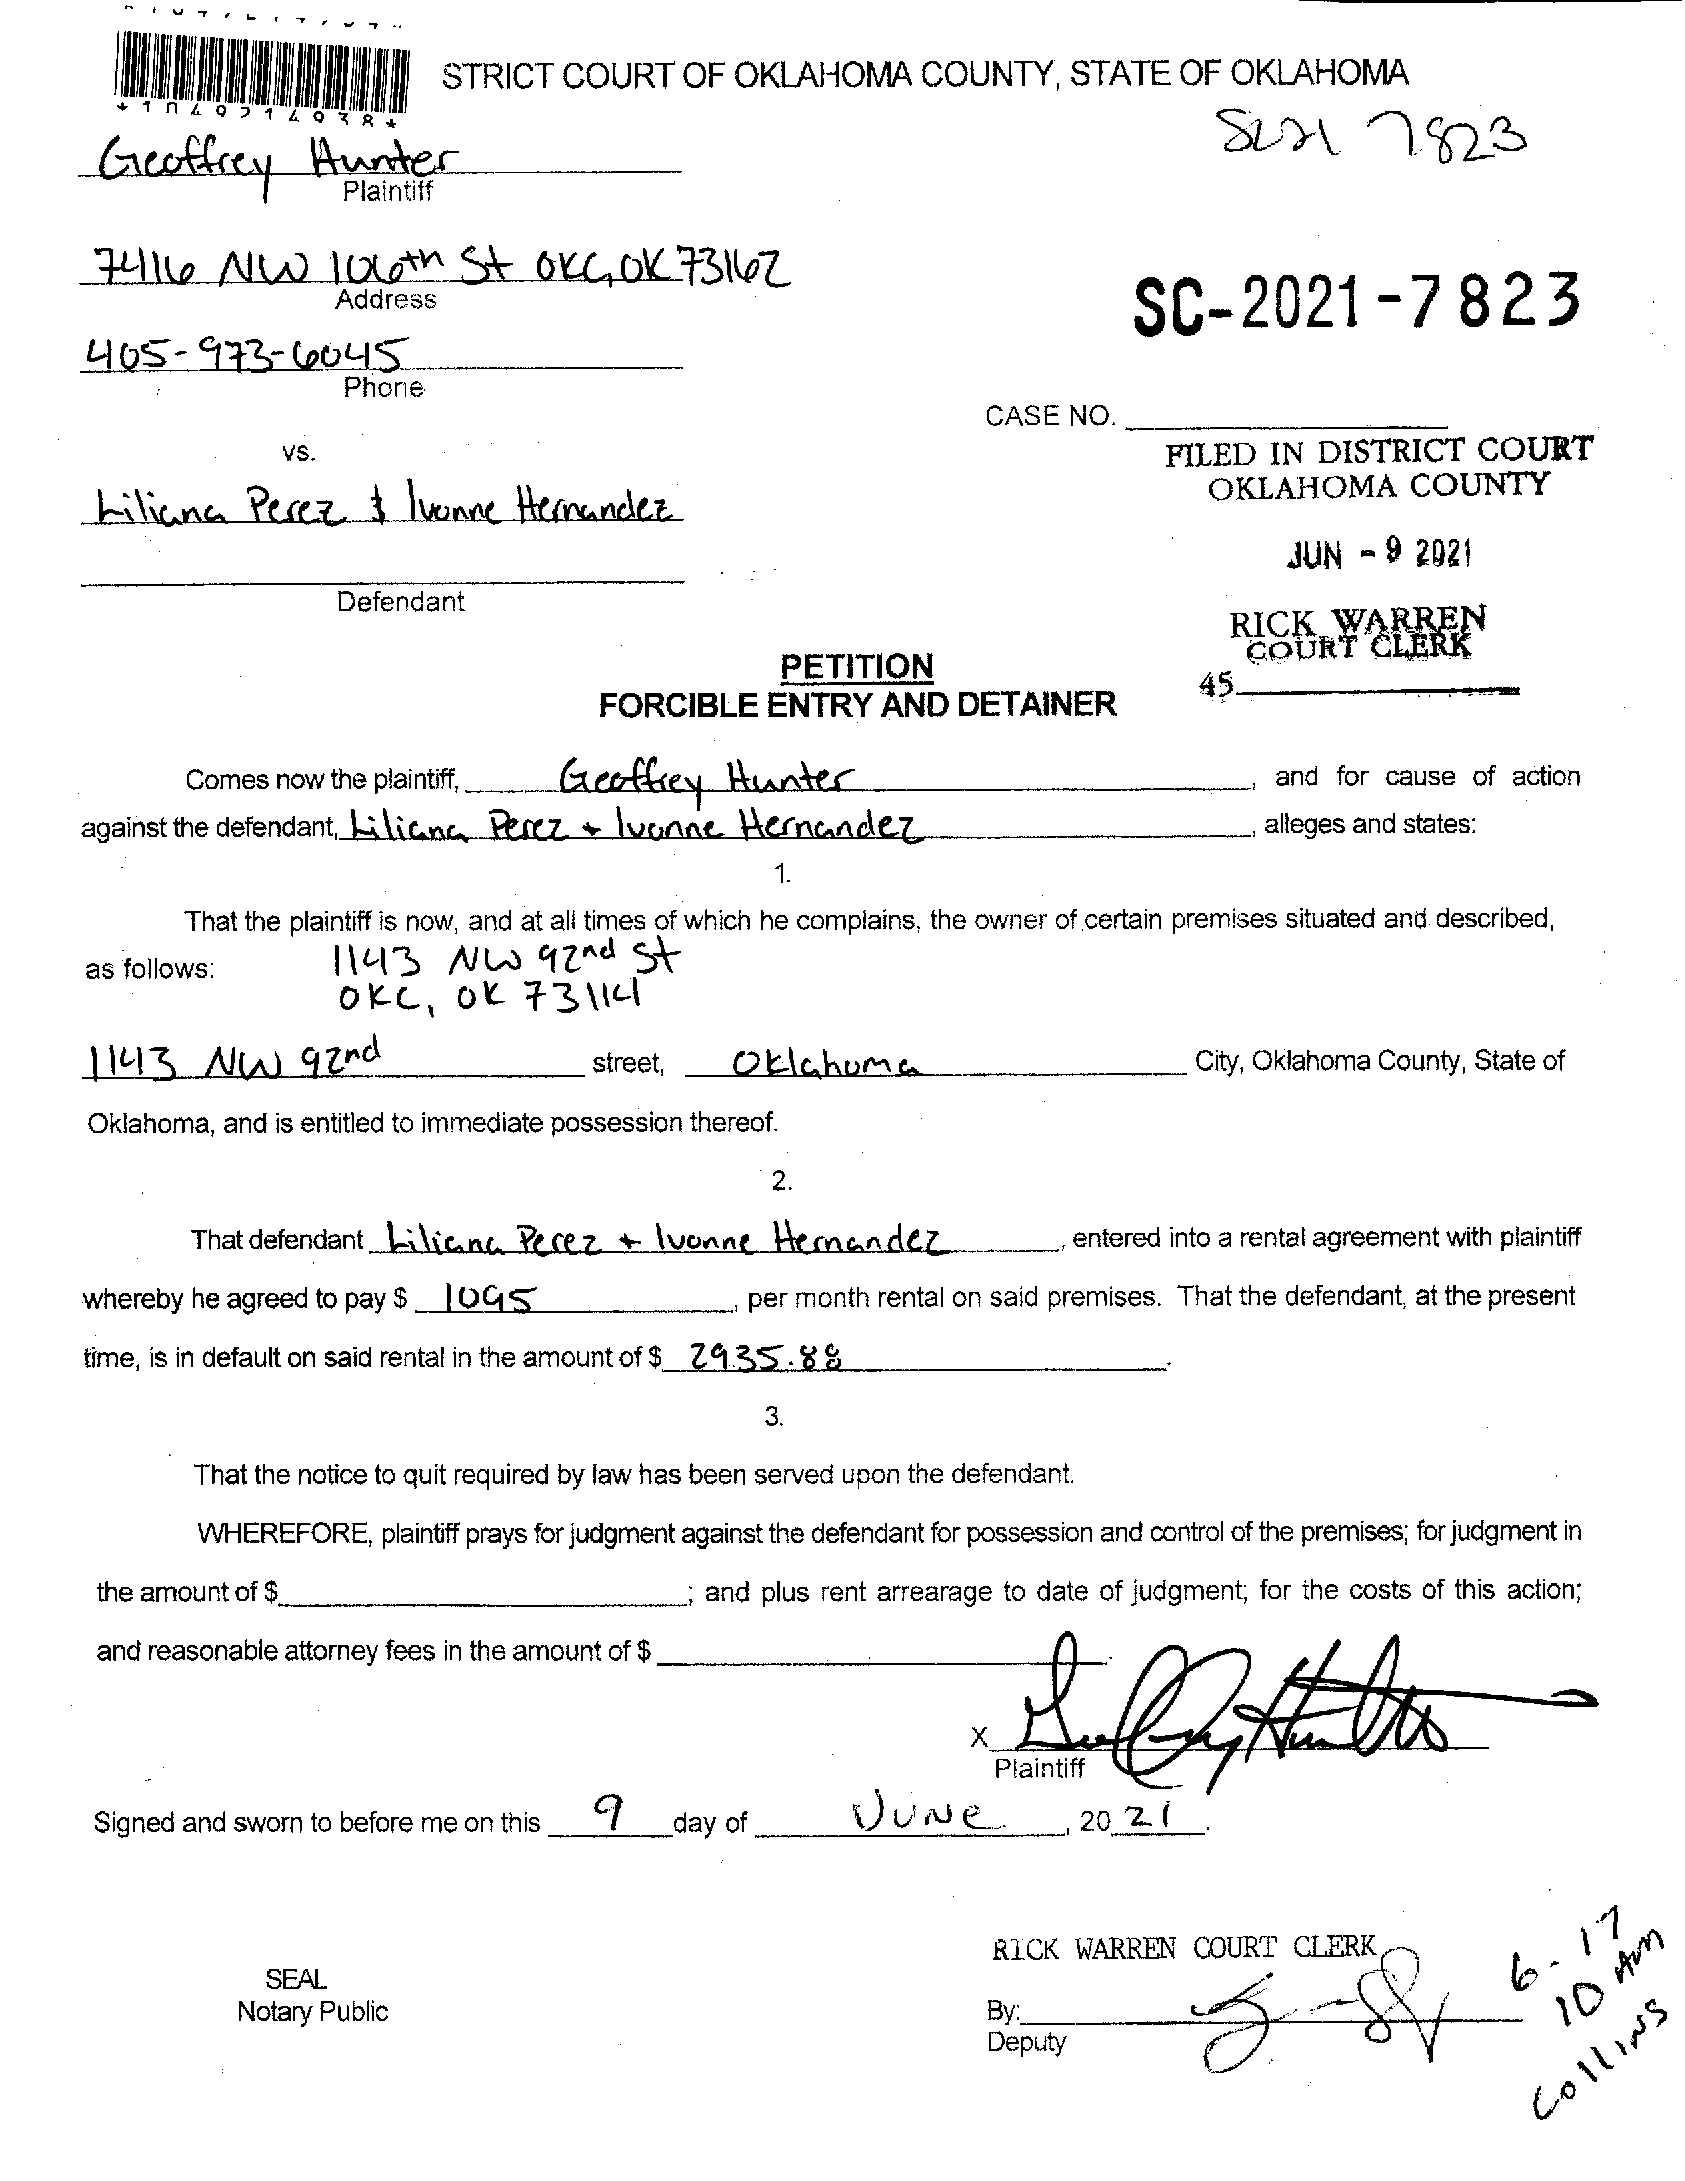 *1049214938*
STRICT COURT OF OKLAHOMA COUNTY, STATE OF OKLAHOMA
SC21 7823
Geoffrey Hunter
Plaintiff
7416 NW 106th St OKC, OK 73162
Address
SC-2021-7823
405-973-6045
Phone
CASE NO.
vs.
FILED IN DISTRICT COURT
OKLAHOMA COUNTY
Liliana Perez & Ivonne Hernandez
JUN - 9 2021
Defendant
RICK WARREN
COURT CLERK
45
PETITION
FORCIBLE ENTRY AND DETAINER
Comes now the plaintiff, Geoffrey Hunter, and for cause of action
against the defendant, Liliana Perez + Ivonne Hernandez, alleges and states:
1.
That the plaintiff is now, and at all times of which he complains, the owner of certain premises situated and described,
as follows: 1143 NW 92nd St
OKC, OK 73114
1143 NW 92nd street, Oklahoma City, Oklahoma County, State of
Oklahoma, and is entitled to immediate possession thereof.
2.
That defendant Liliana Perez + Ivonne Hernandez, entered into a rental agreement with plaintiff
whereby he agreed to pay $ 1095, per month rental on said premises. That the defendant, at the present
time, is in default on said rental in the amount of $ 2935.88.
3.
That the notice to quit required by law has been served upon the defendant.
WHEREFORE, plaintiff prays for judgment against the defendant for possession and control of the premises; for judgment in
the amount of $ ; and plus rent arrearage to date of judgment; for the costs of this action;
and reasonable attorney fees in the amount of $
X Geoffrey Hunter
Plaintiff
Signed and sworn to before me on this 9 day of June, 20 21.
RICK WARREN COURT CLERK
SEAL
Notary Public
By:
Deputy
6-17
10 Am
Collins